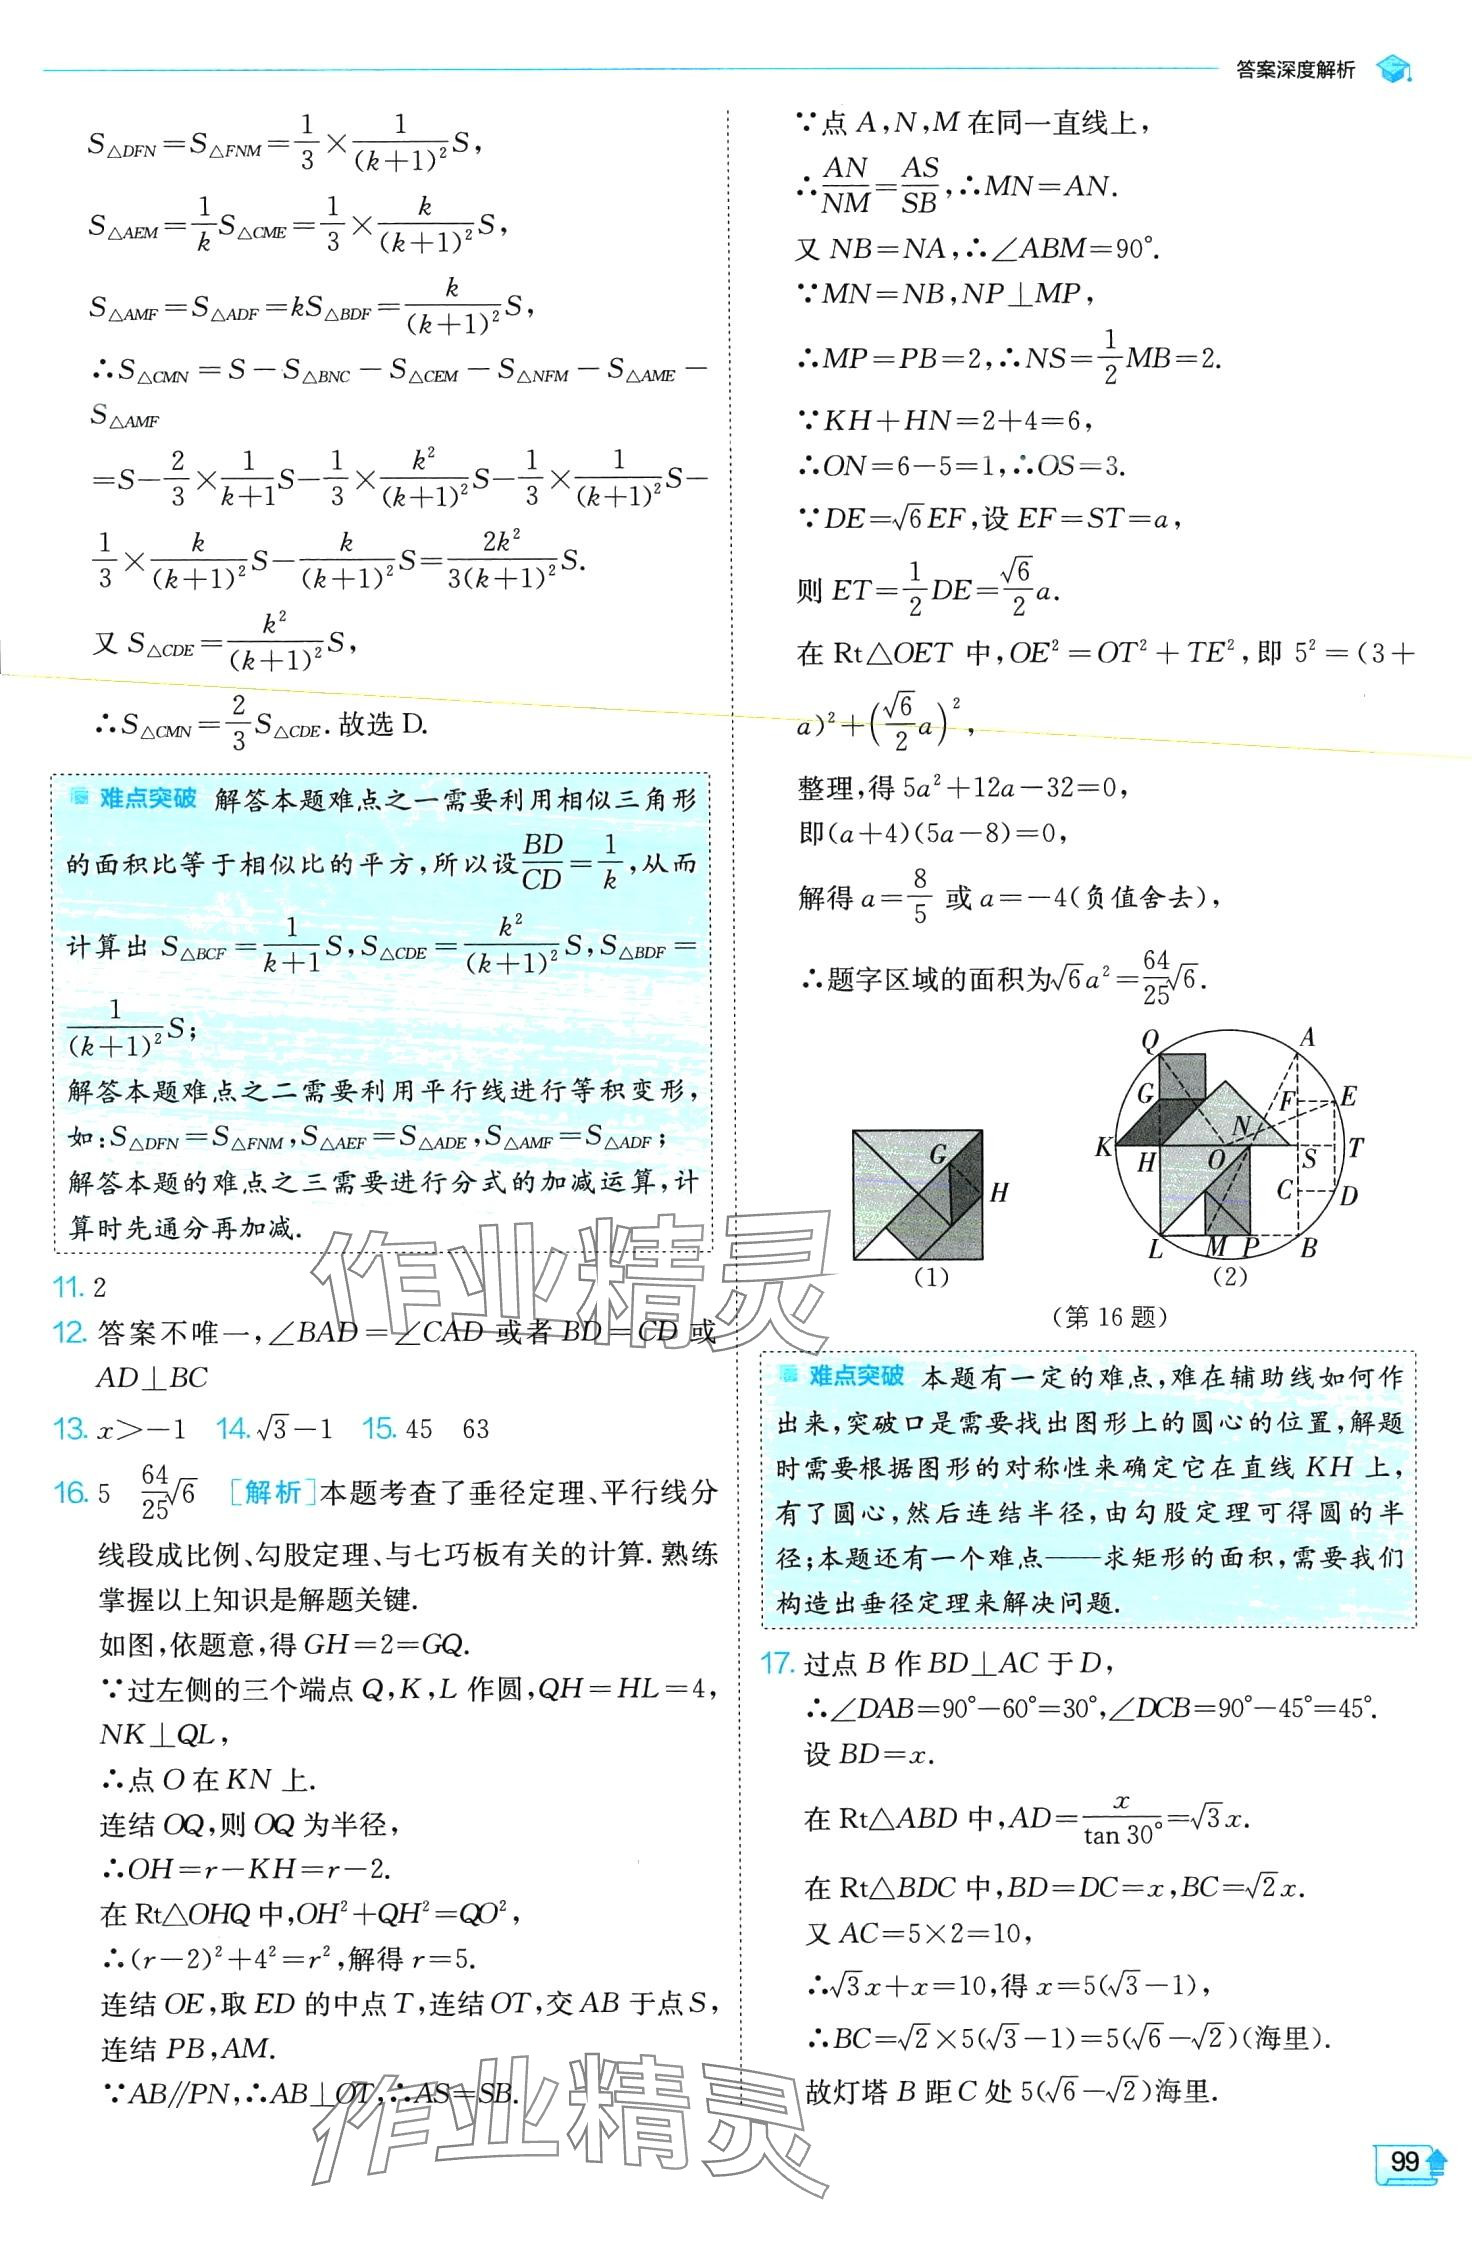 答案深度解析
S△DFN=S△FNM=1/3×1/(k+1)²S,
S△AEM=1/kS△CME=1/3×k/(k+1)²S,
S△AMF=S△ADF=kS△BDF=k/(k+1)²S,
∴S△CMN=S-S△BNC-S△CEM-S△NFM-S△AME-
S△AMF
=S-2/3×1/(k+1)S-1/3×k²/(k+1)²S-1/3×1/(k+1)²S-
1/3×k/(k+1)²S-k/(k+1)²S=2k²/3(k+1)²S.
又 S△CDE=k²/(k+1)²S,
∴S△CMN=2/3S△CDE.故选 D.
难点突破 解答本题难点之一需要利用相似三角形
的面积比等于相似比的平方,所以设BD/CD=1/k,从而
计算出 S△BCF=1/(k+1)S,S△CDE=k²/(k+1)²S,S△BDF=
1/(k+1)²S;
解答本题难点之二需要利用平行线进行等积变形,
如:S△DFN=S△FNM,S△AEF=S△ADE,S△AMF=S△ADF;
解答本题的难点之三需要进行分式的加减运算,计
算时先通分再加减.
11. 2
12. 答案不唯一,∠BAD=∠CAD 或者 BD=CD 或
AD⊥BC
13. x>-1 14. √3-1 15. 45 63
16. 5 64/25√6 [解析]本题考查了垂径定理、平行线分
线段成比例、勾股定理、与七巧板有关的计算.熟练
掌握以上知识是解题关键.
如图,依题意,得 GH=2=GQ.
∵过左侧的三个端点 Q,K,L 作圆,QH=HL=4,
NK⊥QL,
∴点 O 在 KN 上.
连结 OQ,则 OQ 为半径,
∴OH=r-KH=r-2.
在 Rt△OHQ 中,OH²+QH²=QO²,
∴(r-2)²+4²=r²,解得 r=5.
连结 OE,取 ED 的中点 T,连结 OT,交 AB 于点 S,
连结 PB,AM.
∵AB∥PN,∴AB⊥OT,∴AS=SB.
∵点 A,N,M 在同一直线上,
∴AN/NM=AS/SB,∴MN=AN.
又 NB=NA,∴∠ABM=90°.
∵MN=NB,NP⊥MP,
∴MP=PB=2,∴NS=1/2MB=2.
∵KH+HN=2+4=6,
∴ON=6-5=1,∴OS=3.
∵DE=√6EF,设 EF=ST=a,
则 ET=1/2DE=√6/2a.
在 Rt△OET 中,OE²=OT²+TE²,即 5²=(3+
a)²+(√6/2a)²,
整理,得 5a²+12a-32=0,
即(a+4)(5a-8)=0,
解得 a=8/5 或 a=-4(负值舍去),
∴题字区域的面积为√6a²=64/25√6.
G
H
(1)
Q
A
G
F
E
N
K
H
O
S
T
C
D
L
M
P
B
(2)
(第 16 题)
难点突破 本题有一定的难点,难在辅助线如何作
出来,突破口是需要找出图形上的圆心的位置,解题
时需要根据图形的对称性来确定它在直线 KH 上,
有了圆心,然后连结半径,由勾股定理可得圆的半
径;本题还有一个难点——求矩形的面积,需要我们
构造出垂径定理来解决问题.
17. 过点 B 作 BD⊥AC 于 D,
∴∠DAB=90°-60°=30°,∠DCB=90°-45°=45°.
设 BD=x.
在 Rt△ABD 中,AD=x/tan 30°=√3x.
在 Rt△BDC 中,BD=DC=x,BC=√2x.
又 AC=5×2=10,
∴√3x+x=10,得 x=5(√3-1),
∴BC=√2×5(√3-1)=5(√6-√2)(海里).
故灯塔 B 距 C 处 5(√6-√2)海里.
作业精灵
作业精灵
99